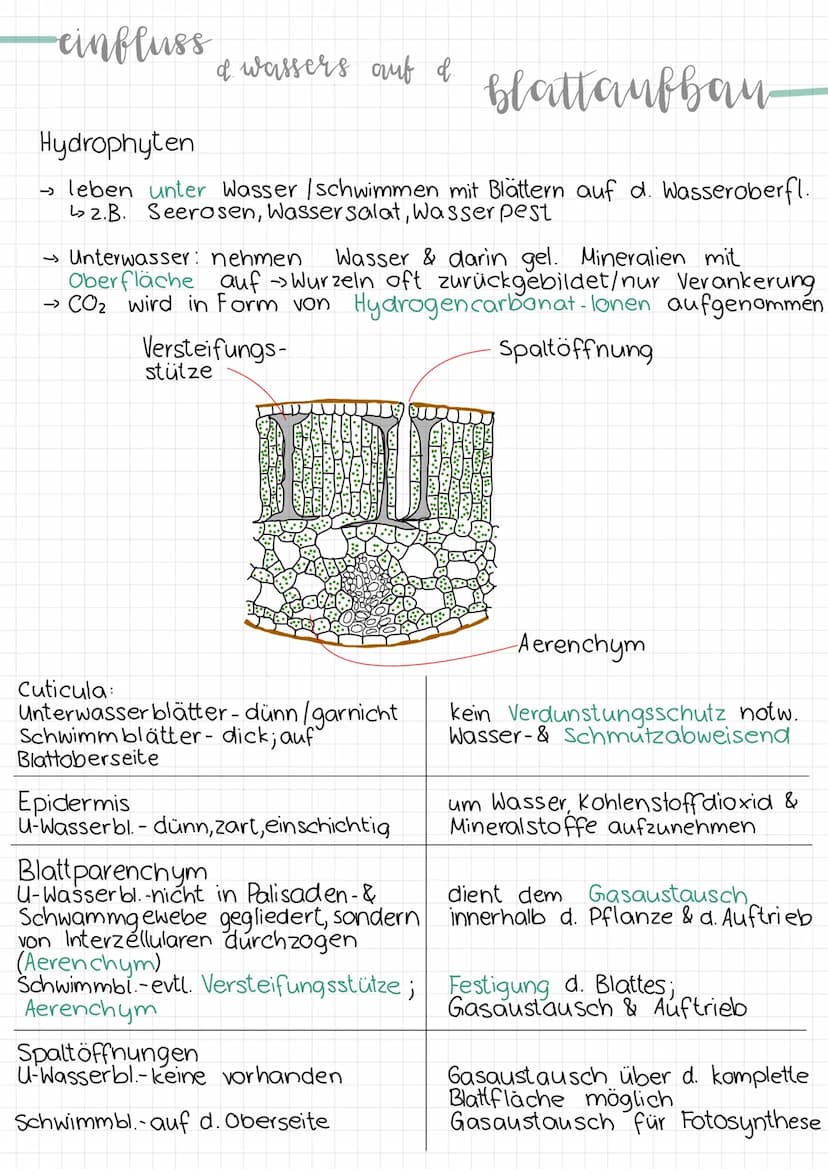 einfluss
d. wassers auf d.
blattaufbau
Hydrophyten
→ leben unter Wasser / schwimmen mit Blättern auf d. Wasseroberfl.
↳ z.B. Seerosen, Wassersalat, Wasserpest
→ Unterwasser: nehmen Wasser & darin gel. Mineralien mit
Oberfläche auf → Wurzeln oft zurückgebildet/nur Verankerung
→ CO₂ wird in Form von Hydrogencarbonat-Ionen aufgenommen
Versteifungs-
stütze
Spaltöffnung
Aerenchym
Cuticula:
Unterwasserblätter - dünn / garnicht
Schwimmblätter - dick; auf
Blattoberseite
kein Verdunstungsschutz notw.
Wasser- & Schmutzabweisend
Epidermis
U-Wasserbl. - dünn, zart, einschichtig
um Wasser, Kohlenstoffdioxid &
Mineralstoffe aufzunehmen
Blattparenchym
U-Wasserbl. - nicht in Palisaden- &
Schwammgewebe gegliedert, sondern
von Interzellularen durchzogen
(Aerenchym)
Schwimmbl. - evtl. Versteifungsstütze ;
Aerenchym
dient dem Gasaustausch
innerhalb d. Pflanze & d. Auftrieb
Festigung d. Blattes;
Gasaustausch & Auftrieb
Spaltöffnungen
U-Wasserbl. - keine vorhanden
Schwimmbl. - auf d. Oberseite
Gasaustausch über d. komplette
Blattfläche möglich
Gasaustausch für Fotosynthese